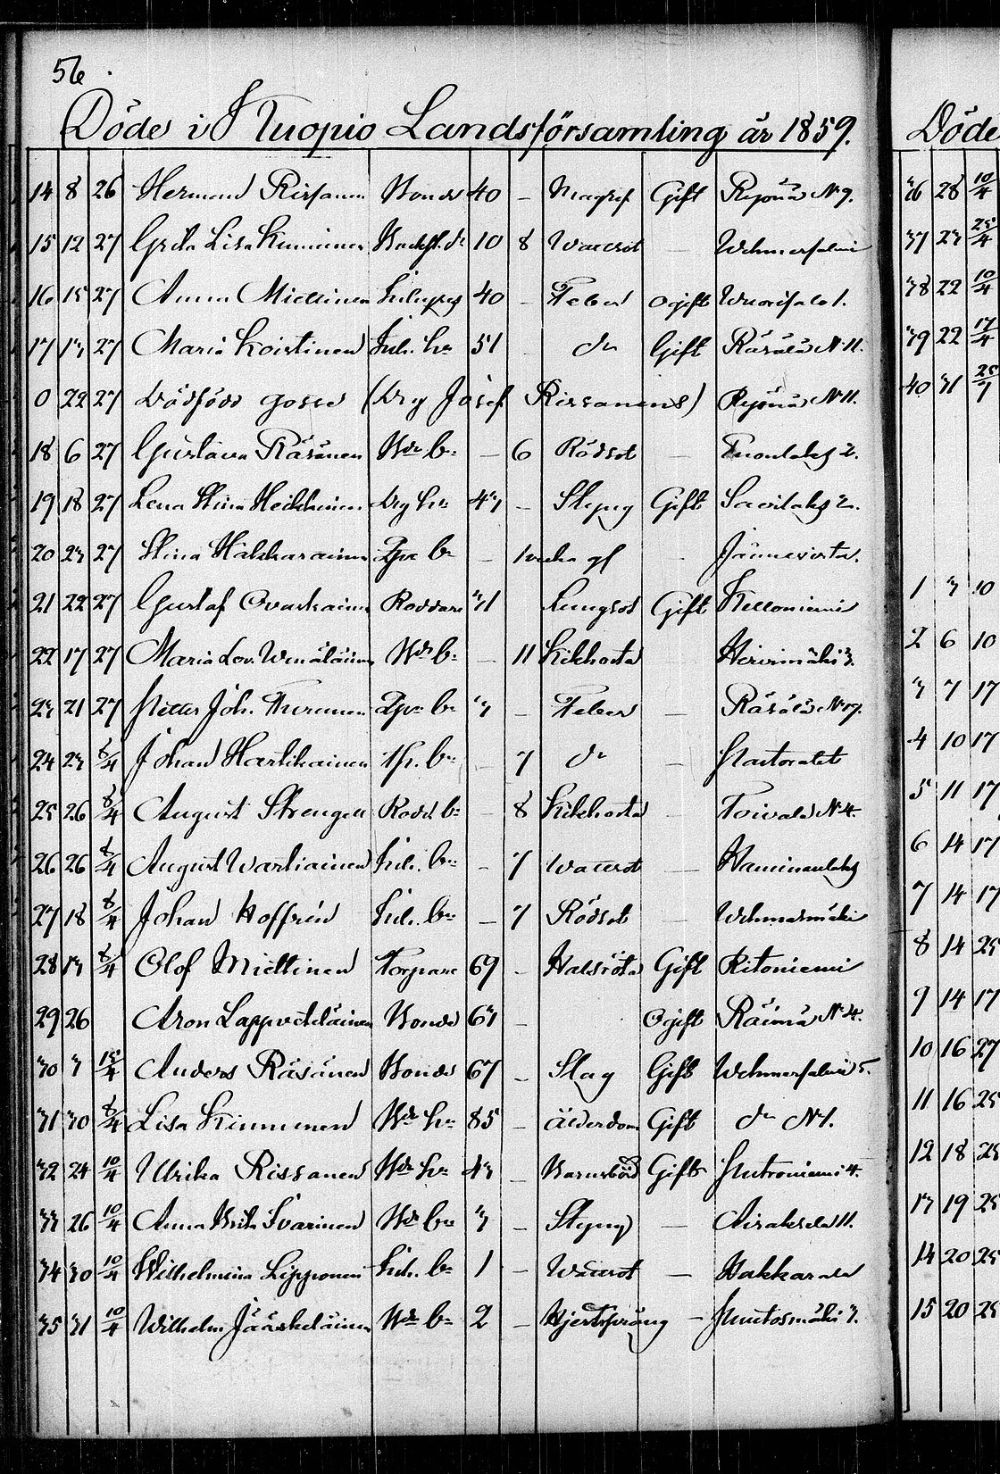 56
Döde i Kuopio Landsförsamling år 1859.
14 8 26 Herman Rissanen Bonde 40 – Magref Gift Ryönä No 9.
15 12 27 Greta Lisa Kinnunen 10 8 Wattsot – Wehmersalmi
16 15 27 Anna Miettinen 40 – Feber Ogift Wuorisalo 1.
17 13 27 Maria Koistinen Inh. hu 51 do Gift Räsälä No 11.
0 22 27 Dödfödd gosse (Drg Josef Rissanens) Ryönä No 11.
18 6 27 Gustava Räsänen Bde b. – 6 Rödsot –
19 18 27 Lena Stina Heikkinen Drg hu 43 – Styng Gift Savilaks 2.
20 23 27 Stina b. – 1 vecka gl – Jännevirta.
21 22 27 Gustaf Ovaskainen 31 Lungsot Gift Kelloniemi
22 17 27 Maria Lov. Wenäläinen Bde b. – 11 Kikhosta Hirvimäki 3.
23 21 27 Petter Joh. b. 3 – Feber – Räsälä No 17.
24 23 8/4 Johan Hartikainen b. – 7 do –
25 26 8/4 August Strengell b. – 8 Kikhosta – Toivala No 4.
26 26 8/4 August Wartiainen Inh. b. – 7 Wattsot – Haminanlaks
27 18 8/4 Johan Hoffrén Inh. b. – 7 Rödsot – Wehmasmäki
28 13 8/4 Olof Miettinen Torpare 69 – Halsröta Gift Ritoniemi
29 26 Aron Lappveteläinen Bonde 63 – Ogift Räimä No 4.
30 3 15/4 Anders Räsänen Bonde 67 – Slag Gift Wehmersalmi 5.
31 30 8/4 Lisa Kinnunen Bde hu 85 – Ålderdom Gift do No 1.
32 24 10/4 Ulrika Rissanen Bde hu 43 – Barnsbörd Gift Putroniemi 4.
33 26 10/4 Anna Brita Bde b. 3 – Styng – Airaksela 11.
34 30 10/4 Wilhelmina Lipponen Inh. b. 1 – Wattsot – Hakkarala
35 31 10/4 Wilhelm Jääskeläinen Bde b. 2 – – 3.
Döde
36 28 10/4
37 23 25/4
38 22 10/4
39 22 17/4
40 31
1 3 10
2 6 10
3 7 17
4 10 17
5 11 17
6 14 17
7 14 17
8 14 25
9 14 17
10 16 27
11 16 25
12 18 25
13 19 25
14 20 25
15 20 25